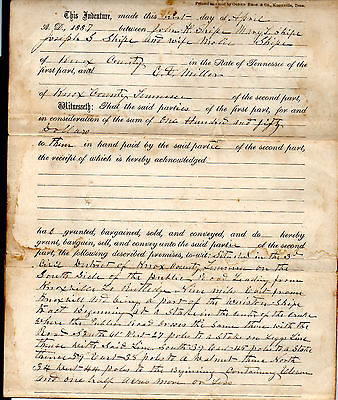 This Indenture, made this first day of April
A. D., 1887 between John K. Shipe Mary Shipe
Joseph S Shipe and wife Shipe
of Knox County in the State of Tennessee of the
first part, and C. F. Miller
of Knox County Tennessee of the second part,
Witnesseth: That the said parties of the first part, for and
in consideration of the sum of One Hundred and fifty
Dollars
to them in hand paid by the said partie of the second part,
the receipt of which is hereby acknowledged
ha granted, bargained, sold, and conveyed, and do hereby
grant, bargain, sell, and convey unto the said partie of the second
part, the following described premises, to-wit: situated in the 3rd
Civil District of Knox County Tennessee on the
South Side of the Public Road leading from
Knoxville to Rutledge Nine mile East from
Knoxville and being a part of the Shipe
tract Beginning at a Stake in the center of the creek
where the Public road cross the same thence with
the Road South West 27 poles to a Stake on Line
thence with Said Line South 39 East 48 poles to a Stake
thence East 35 poles to a Walnut thence North
34 West 44 poles to the Beginning Containing Eleven
and one half acres more or less